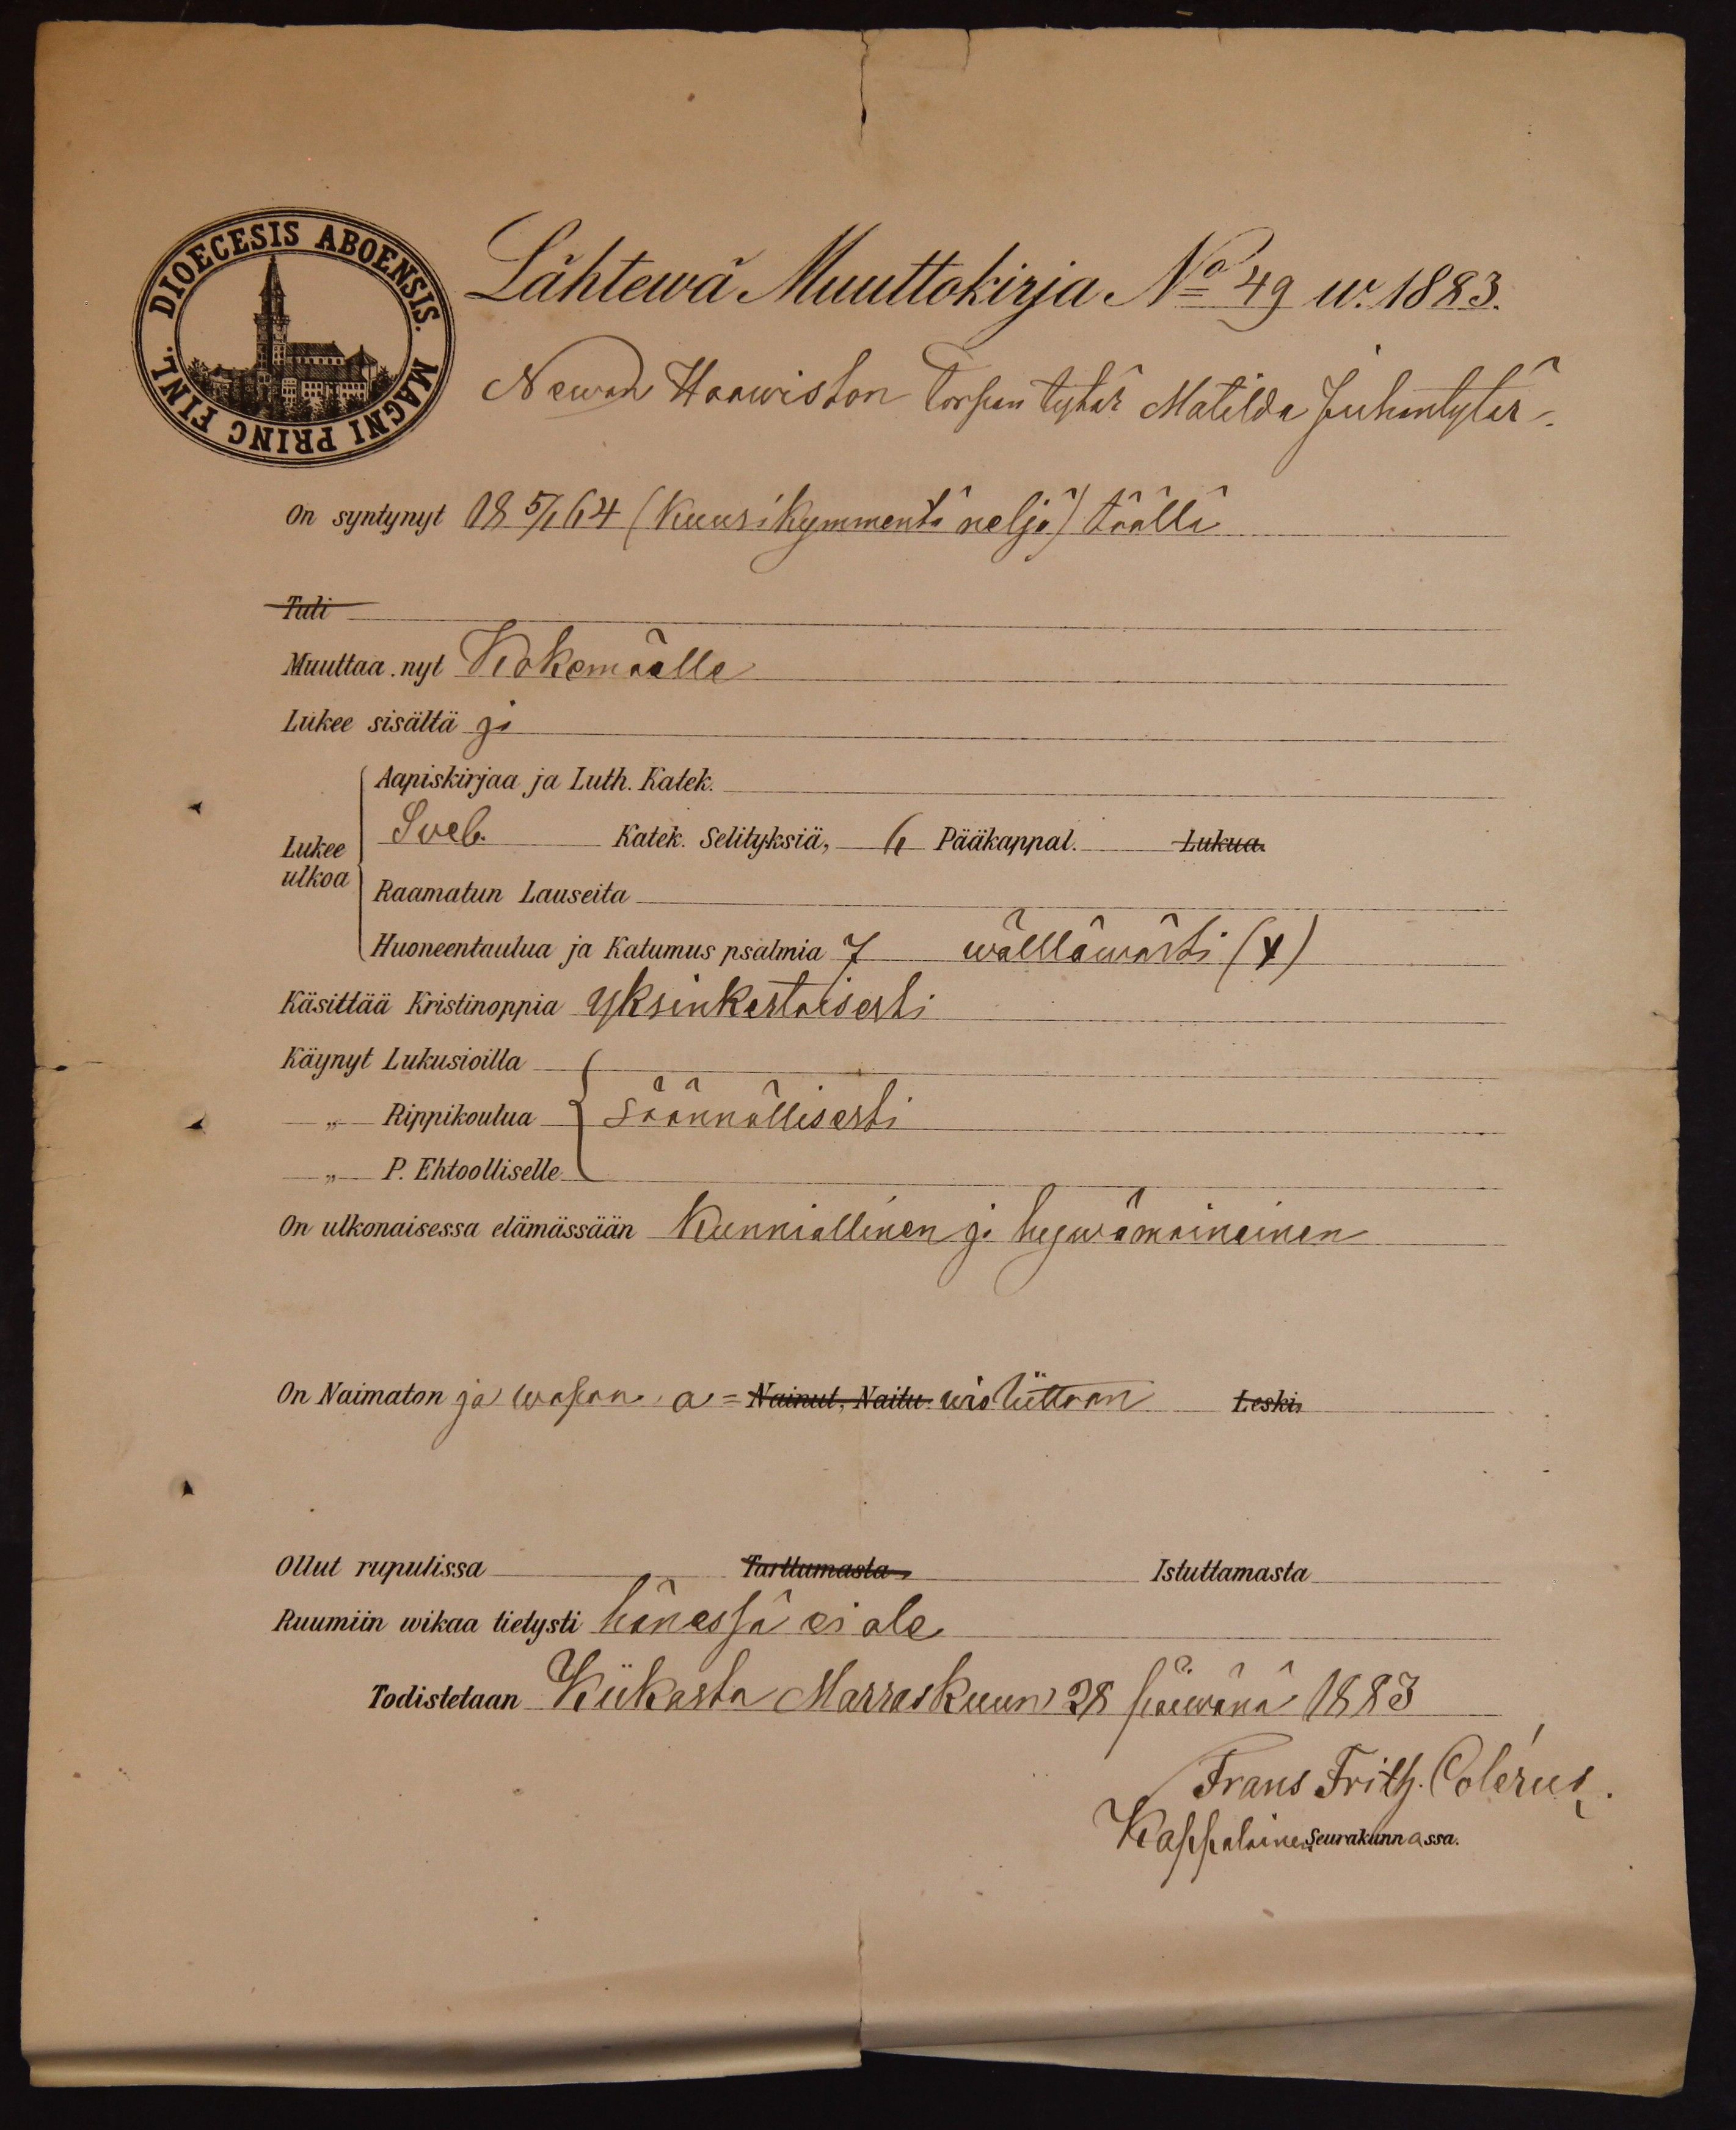 DIOECESIS ABOENSIS. MAGNI PRINC FINL.
Lähtewä Muuttokirja No 49 w. 1883.
Newan Haawiston torpan tytär Matilda Juhantytär.
On syntynyt 18 5/1 64 (kuusikymmentä neljä) täällä
Tuli
Muuttaa nyt Kokemäelle
Lukee sisältä ja
Aapiskirjaa ja Luth. Katek.
Lukee ulkoa
Sveb. Katek. Selityksiä, 6 Pääkappal. Lukua.
Raamatun Lauseita
Huoneentaulua ja Katumus psalmia 7 wälttäwästi (x)
Käsittää Kristinoppia yksinkertaisesti
Käynyt Lukusioilla
„ Rippikoulua säännöllisesti
„ P. Ehtoolliselle
On ulkonaisessa elämässään kunniallinen ja hywämaineinen
On Naimaton ja wapaa a= Nainut, Naitu. wioliittoon Leski.
Ollut rupulissa Tarttumasta Istuttamasta
Ruumiin wikaa tietysti hänessä ei ole
Todistetaan Kiikasta Marraskuun 28 päiwänä 1883
Frans Frith. Colérus.
Kappalainen Seurakunnassa.